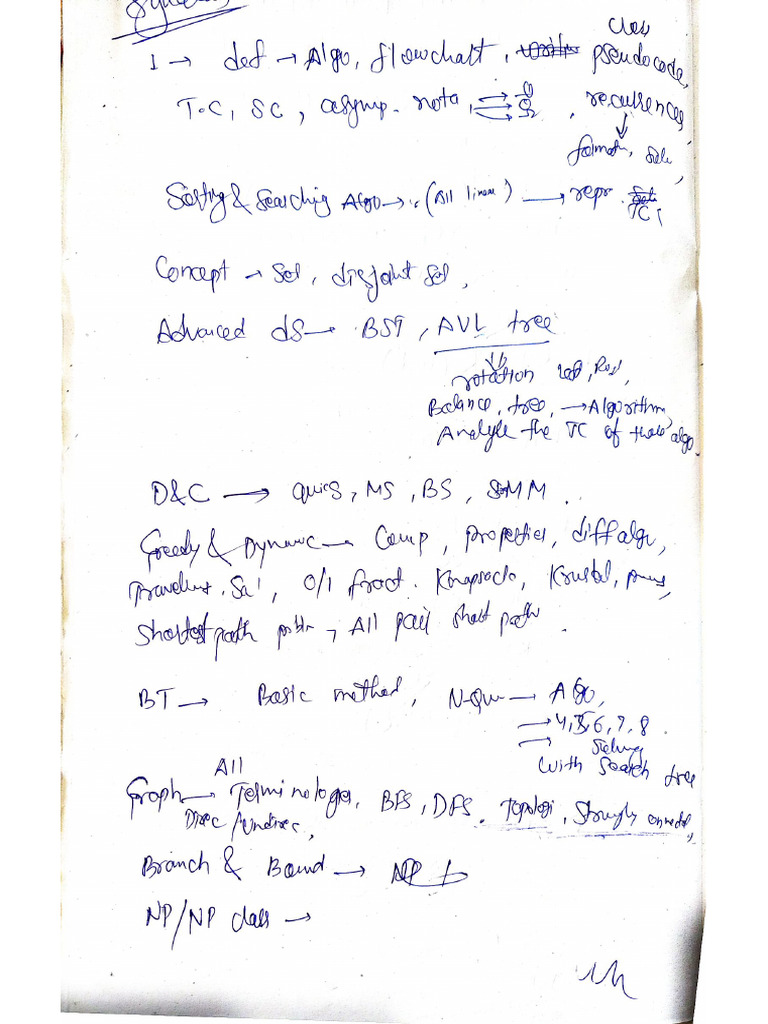 I → def → Algo, flowchart, pseudocode,
T.C, SC, asymp. nota, → O → Ω, recurrences,
Sorting & Searching Algo → (All linear) → repr. TC,
Concept → Set, disjoint Set,
Advanced dS → BST, AVL tree
rotation
Balance, tree, → Algorithm,
Analyze the TC of these algo.
D&C → quick, MS, BS, SMM.
Greedy & Dynamic → Comp, properties, diff algo,
Travelling. Sal, 0/1 fract. Knapsack, Kruskal, prims,
Shortest path problm, All pair short path.
BT → Basic method, N-Qu → Algo,
→ 4,5,6,7,8.
→ Solving
with Search tree
All
Graph → Terminologies, BFS, DFS, Topologi, Strongly connected,
Direc/Undirec,
Branch & Bound →
NP/NP class →